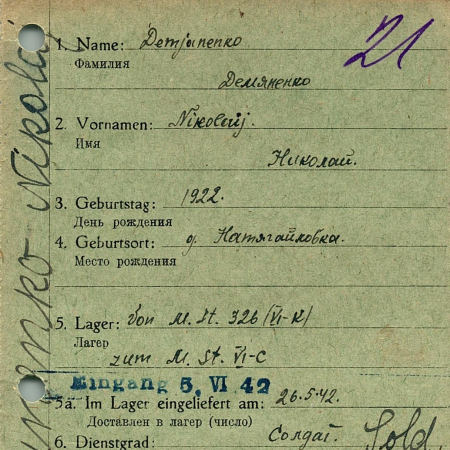 21
1. Name: Demjanenko
Фамилия
Демяненко
2. Vornamen: Nikolaij.
Имя
Николай.
3. Geburtstag: 1922.
День рождения
4. Geburtsort: д. Натягайловка.
Место рождения
5. Lager: von M. St. 326 (VI-K)
Лагер
zum M. St. VI-C
Eingang 5. VI 42
5a. Im Lager eingeliefert am: 26.5.42.
Доставлен в лагер (число)
6. Dienstgrad: Солдат. Sold.
enko Nikolaj